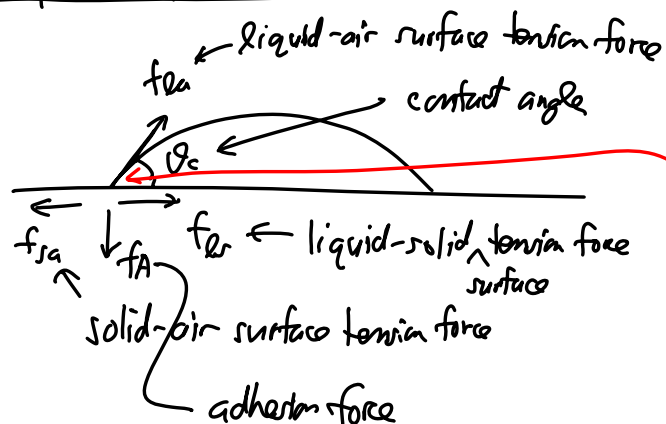 liquid-air surface tension force
fla
contact angle
θc
fsa
fA
fls
liquid-solid ^ tension force
surface
solid-air surface tension force
adhesion force